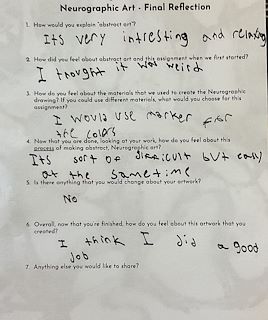 Neurographic Art - Final Reflection
1. How would you explain "abstract art"?
Its very intresting and relaxing
2. How did you feel about abstract art and this assignment when we first started?
I thought it was weird
3. How do you feel about the materials that we used to create the Neurographic
drawing? If you could use different materials, what would you choose for this
assignment?
I would use marker for
the colors
4. Now that you are done, looking at your work, how do you feel about this
process of making abstract, Neurographic art?
Its sort of difficult but easy
at the sametime
5. Is there anything that you would change about your artwork?
No
6. Overall, now that you're finished, how do you feel about this artwork that you
created?
I think I did a good
job
7. Anything else you would like to share?